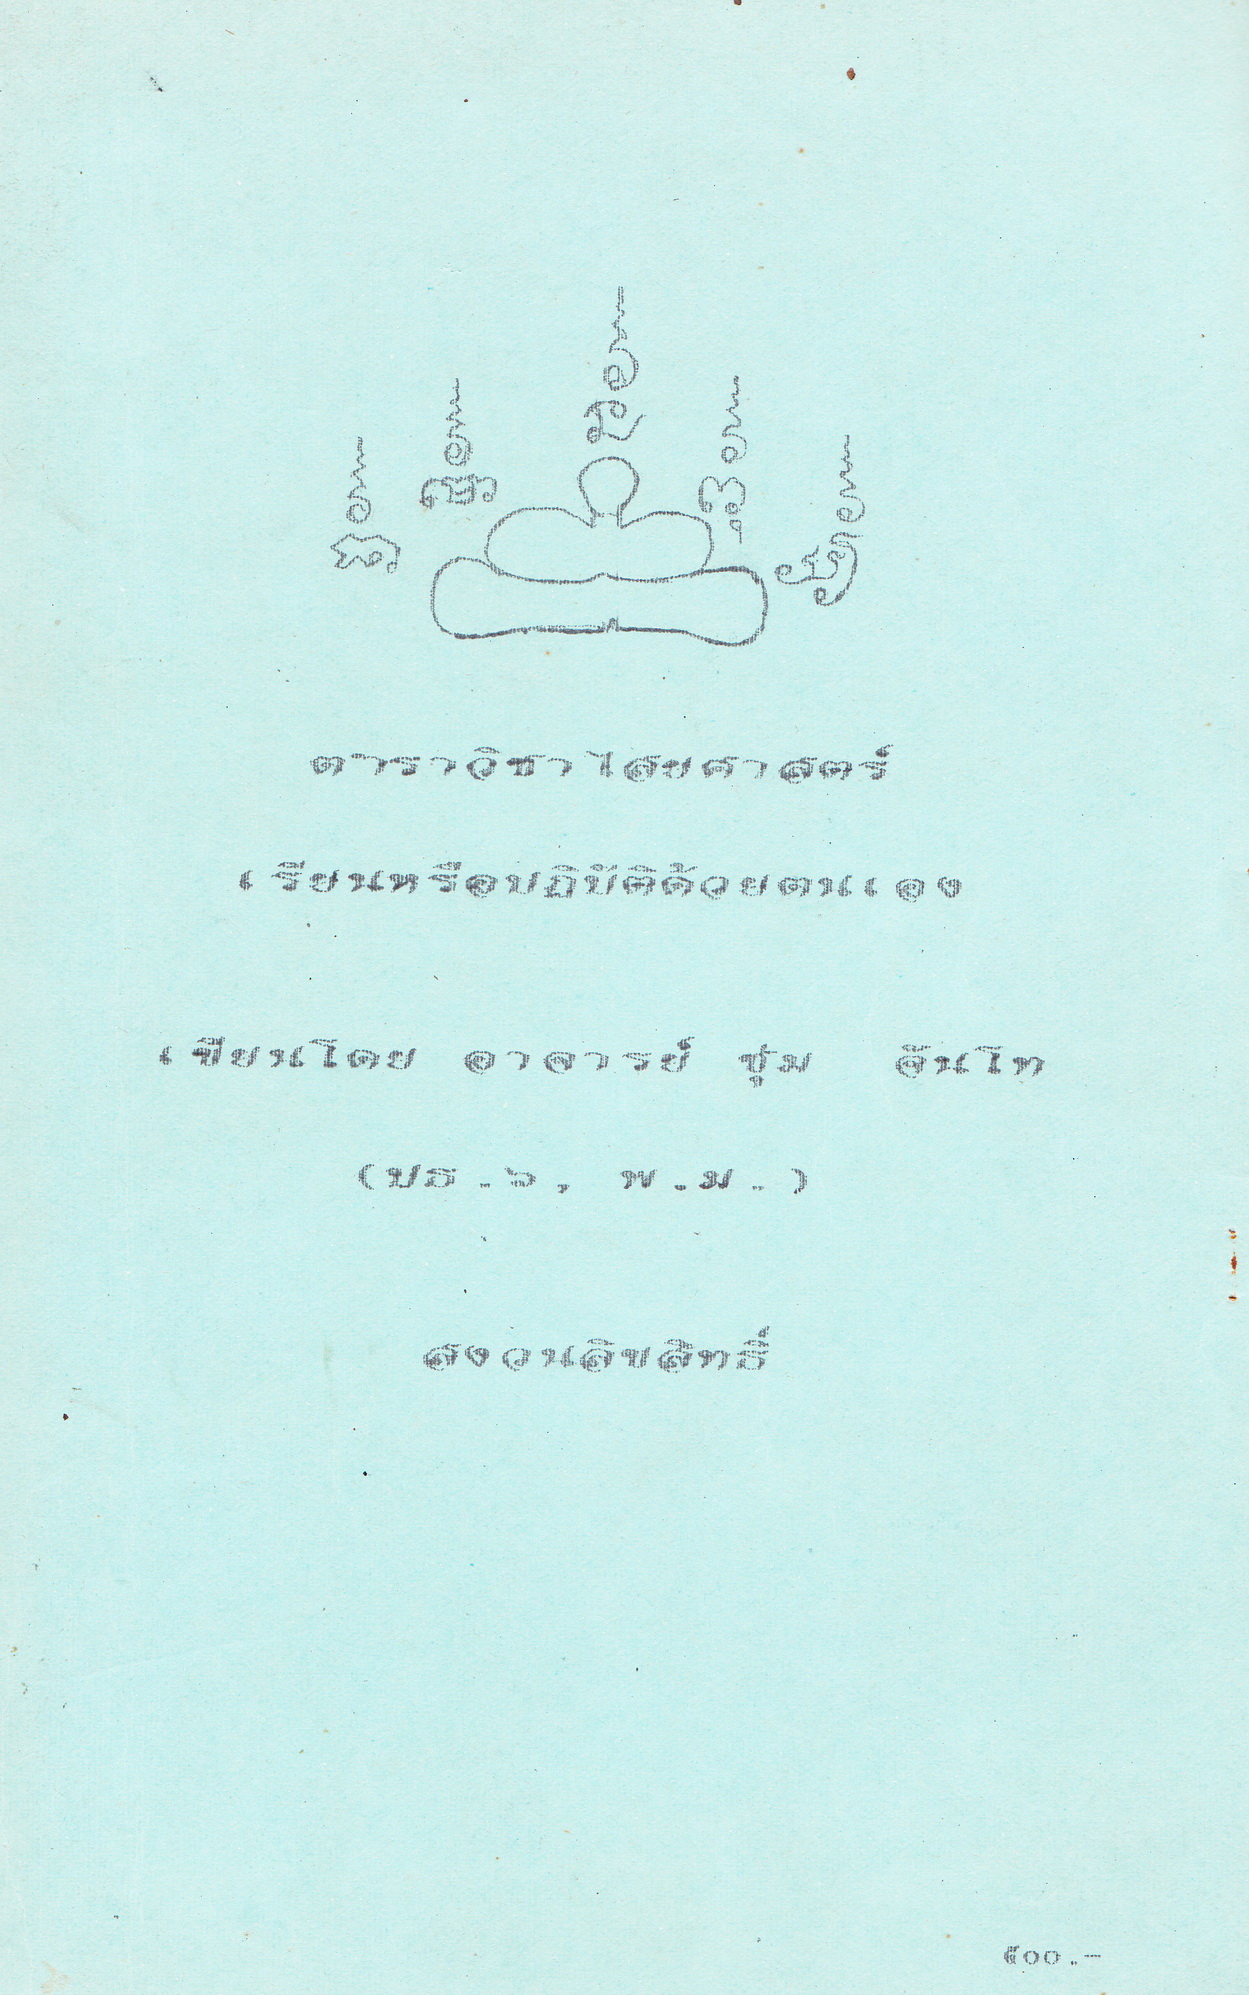 ตำราวิชาไสยศาสตร์
เรียนหรือปฏิบัติด้วยตนเอง
เขียนโดย อาจารย์ ชุม จันโท
(ปธ.๖, พ.ม.)
สงวนลิขสิทธิ์
๕๐๐.-